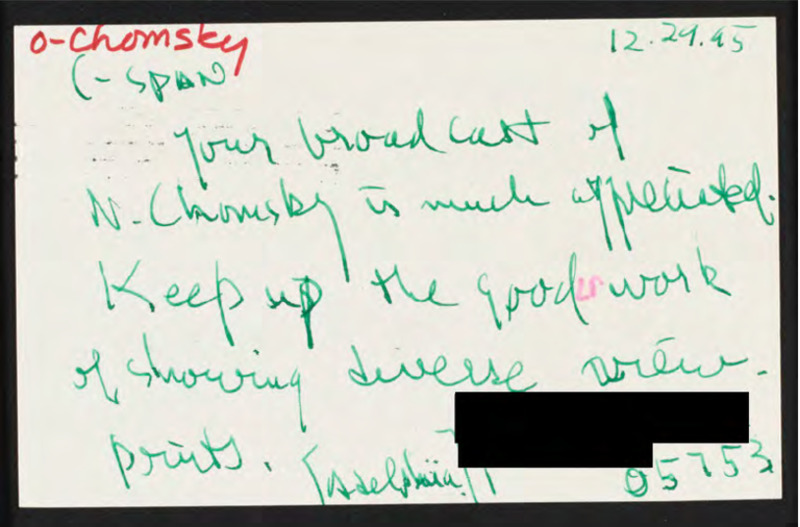 O-Chomsky
12.29.95
C-SPAN
Your broadcast of
N. Chomsky is much appreciated.
Keep up the good work
of showing diverse view-
points.
05753